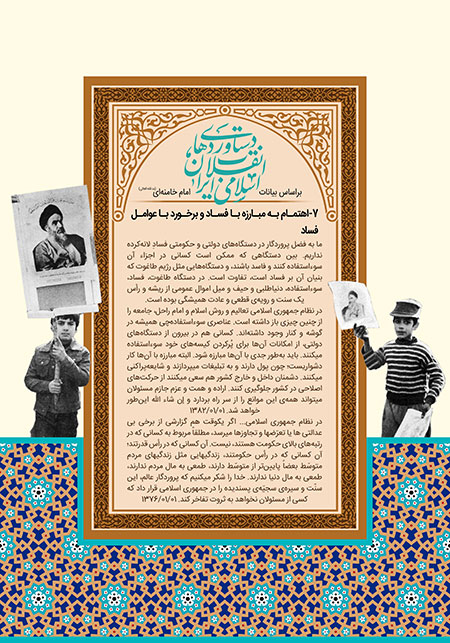 دستاوردهای
انقلاب
اسلامی ایران
براساس بیانات امام خامنه‌ای
۷-اهتمام به مبارزه با فساد و برخورد با عوامل
فساد
ما به فضل پروردگار در دستگاه‌های دولتی و حکومتی فسادِ لانه‌کرده
نداریم. بین دستگاهی که ممکن است کسانی در اجزاء آن
سوءاستفاده کنند و فاسد باشند، و دستگاه‌هایی مثل رژیم طاغوت که
بنیان آن بر فساد است، تفاوت است. در دستگاه طاغوت، فساد،
سوءاستفاده، دنیاطلبی و حیف و میل اموال عمومی از ریشه و رأس
یک سنت و رویه‌ی قطعی و عادت همیشگی بوده است.
در نظام جمهوری اسلامی تعالیم و روش اسلام و امام راحل، جامعه را
از چنین چیزی باز داشته است. عناصری سوءاستفاده‌چی همیشه در
گوشه و کنار وجود داشته‌اند. کسانی هم در بیرون از دستگاه‌های
دولتی، از امکانات آن‌ها برای پُرکردن کیسه‌های خود سوءاستفاده
میکنند. باید به‌طور جدی با آن‌ها مبارزه شود. البته مبارزه با آن‌ها کار
دشواریست؛ چون پول دارند و به تبلیغات میپردازند و شایعه‌پراکنی
میکنند. دشمنان داخل و خارج کشور هم سعی میکنند از حرکت‌های
اصلاحی در کشور جلوگیری کنند. اراده و همت و عزم جازم مسئولان
میتواند همه‌ی این موانع را از سر راه بردارد و إن شاء الله این‌طور
خواهد شد. ۱۳۸۲/۰۱/۰۱
در نظام جمهوری اسلامی... اگر یک‌وقت هم گزارشی از برخی بی
عدالتی ها یا تعرّضها و تجاوزها میرسد، مطلقا مربوط به کسانی که در
رتبه‌های بالای حکومت هستند، نیست. آن کسانی که در رأس قدرتند؛
آن کسانی که در رأس حکومتند، زندگیهایی مثل زندگیهای مردم
متوسّط بعضاً پایین‌تر از متوسّط دارند، طمعی به مال مردم ندارند،
طمعی به مال دنیا ندارند. خدا را شکر میکنیم که پروردگار عالم، این
سنّت و سیره‌ی سجیّه‌ی پسندیده را در جمهوری اسلامی قرار داد که
کسی از مسئولان نخواهد به ثروت تفاخر کند. ۱۳۷۶/۰۱/۰۱